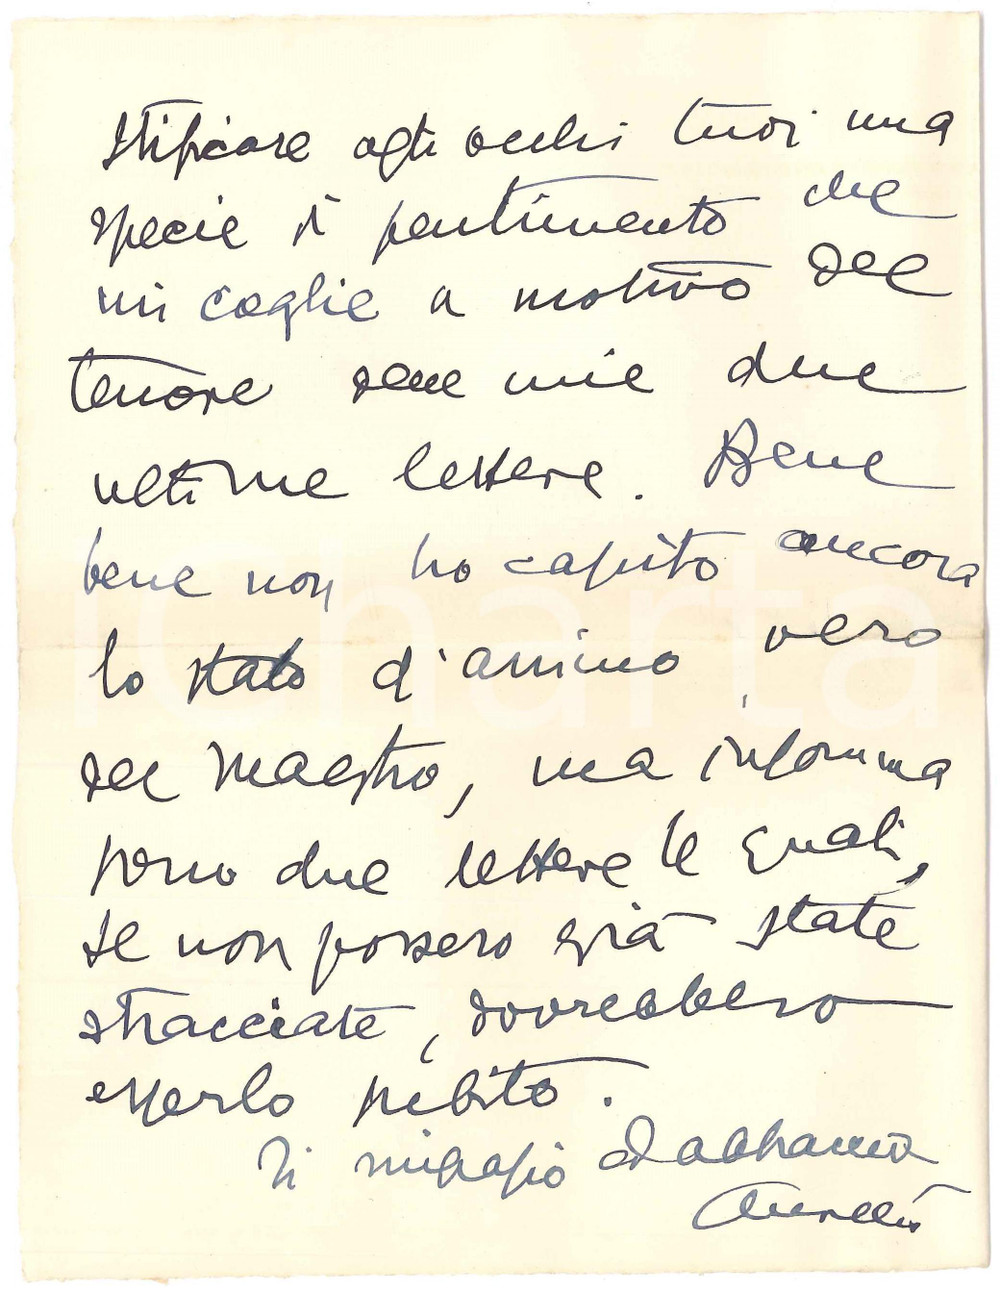 stificare agli occhi tuoi una
specie di pentimento che
mi coglie a motivo del
tenore delle mie due
ultime lettere. Bene
bene non ho capito ancora
lo stato d'animo vero
del Maestro, ma insomma
sono due lettere le quali,
se non fossero già state
stracciate, dovrebbero
esserlo subito.
Ti ringrazio ed abbraccio
Aurelio
iCharta